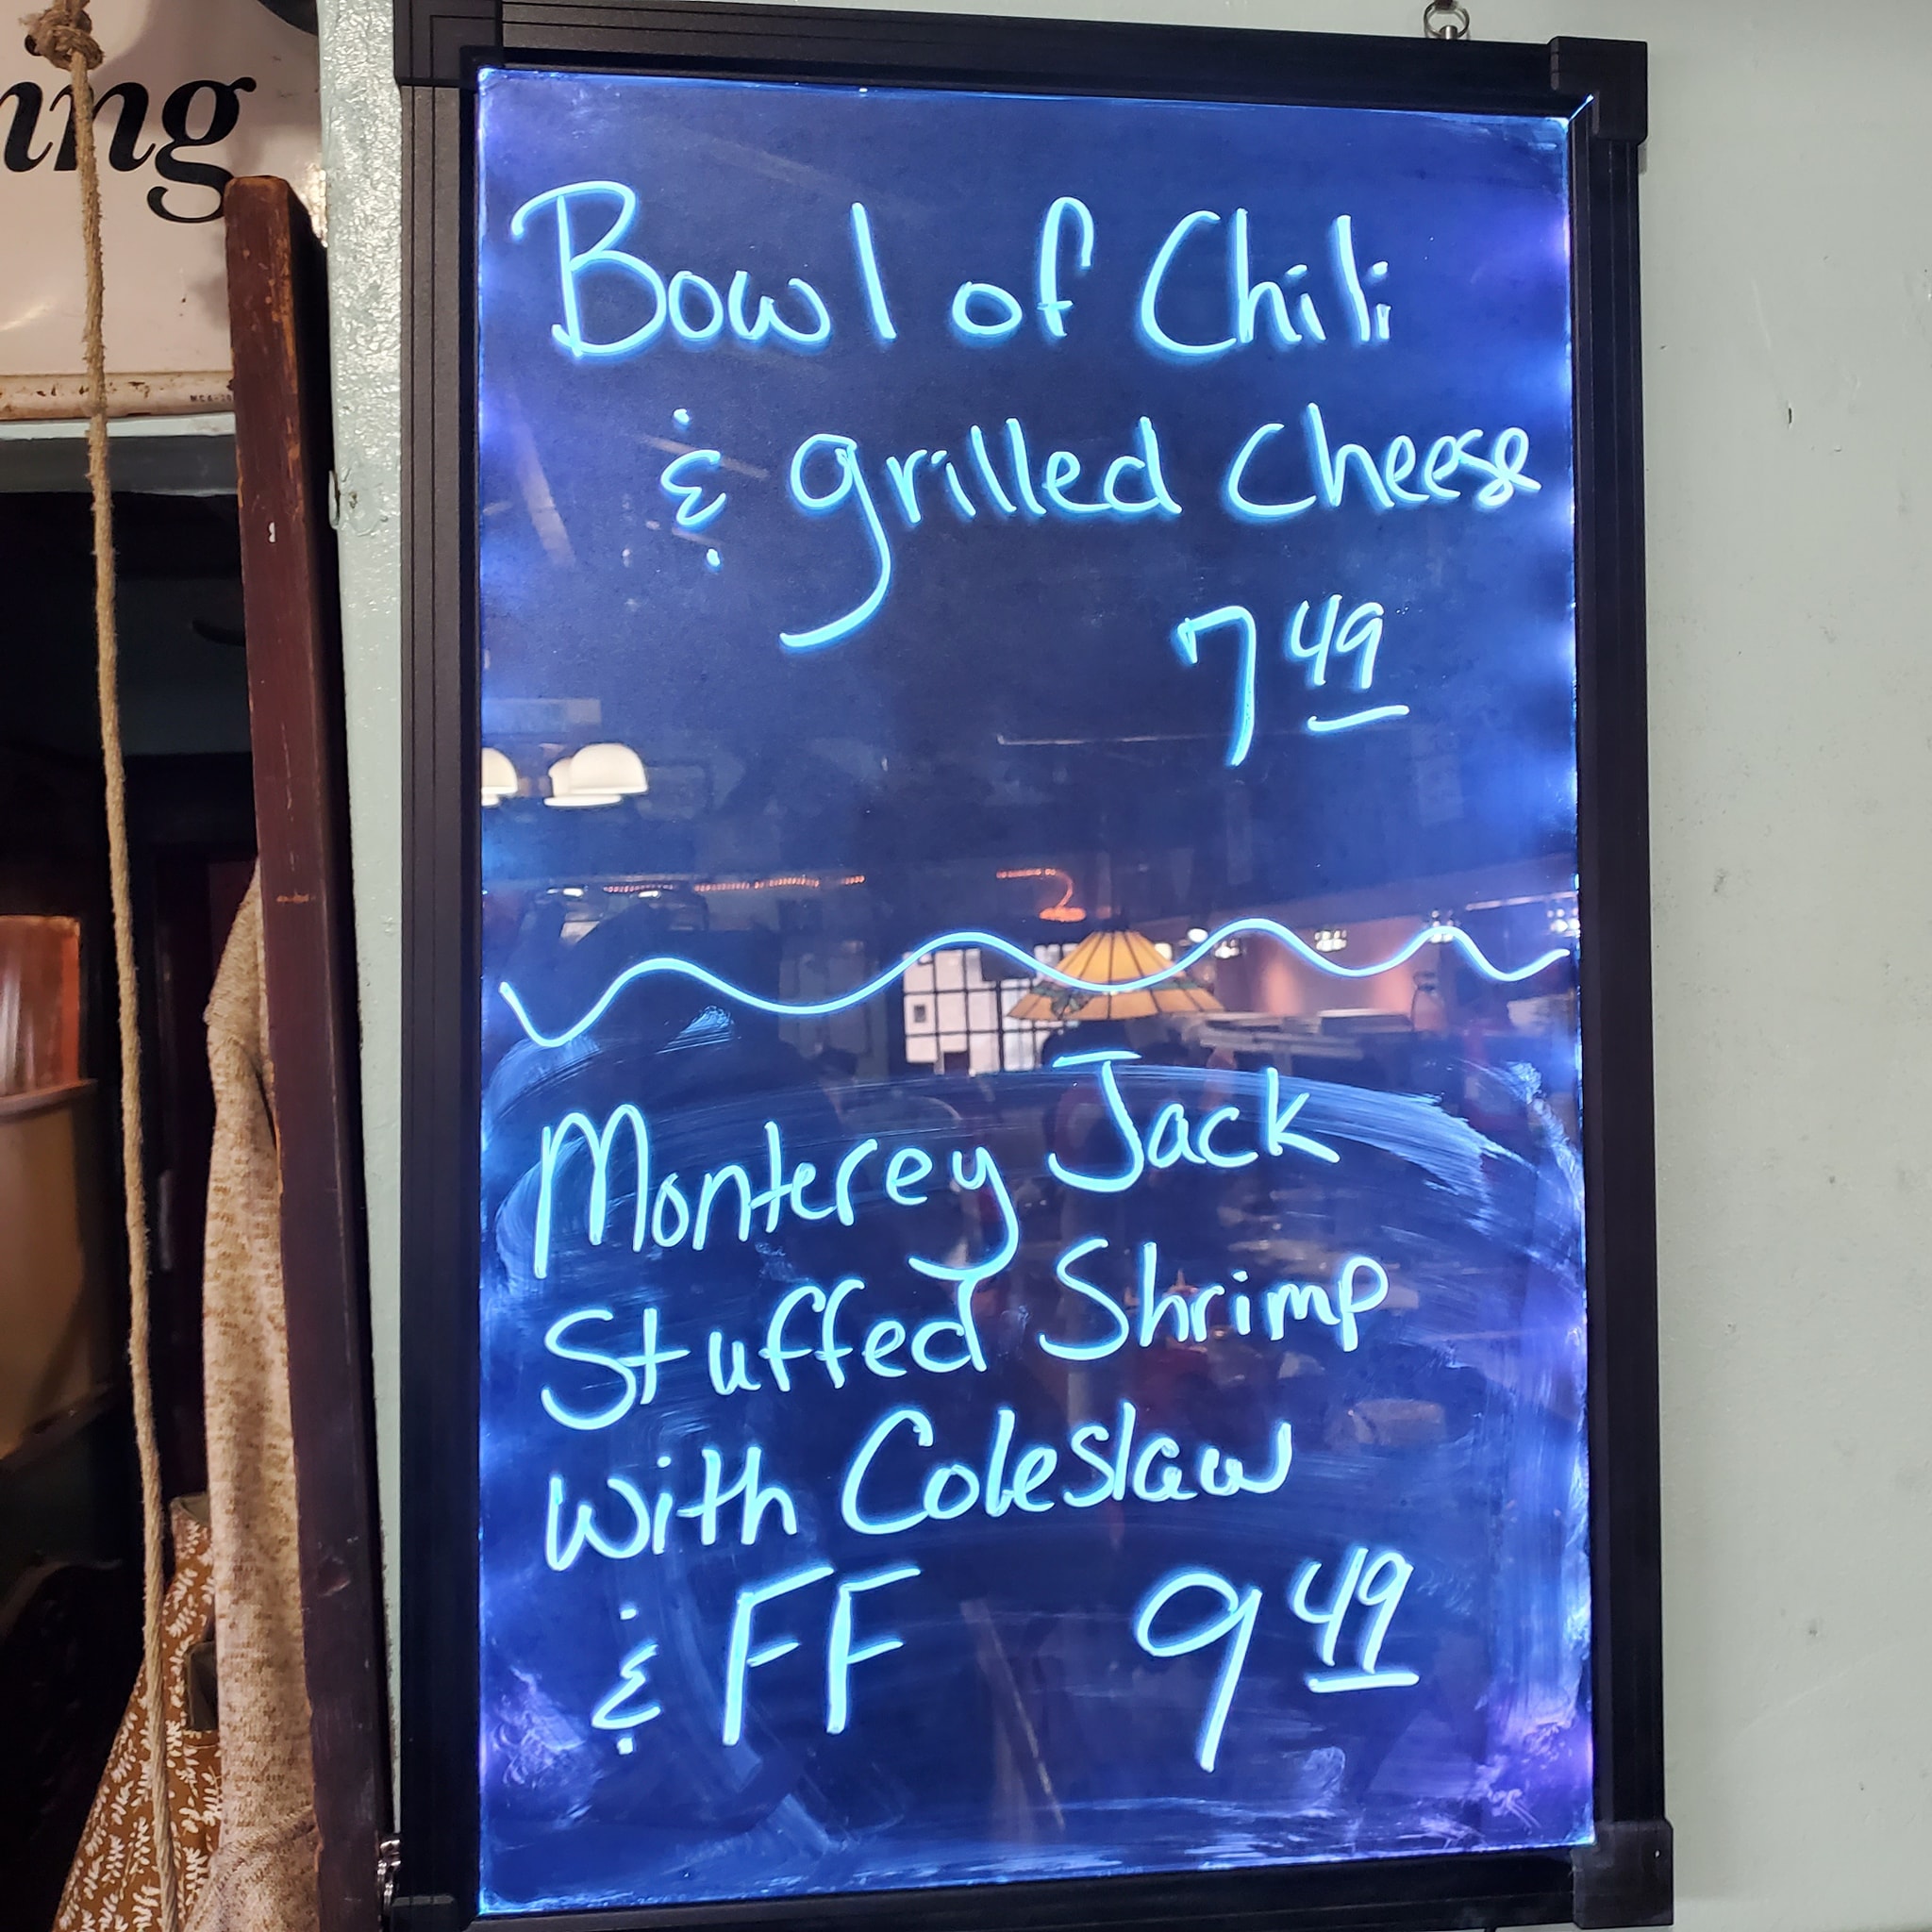 ing
Bowl of Chili
& grilled Cheese
7 49
Monterey Jack
Stuffed Shrimp
with Coleslaw
& FF 9 49